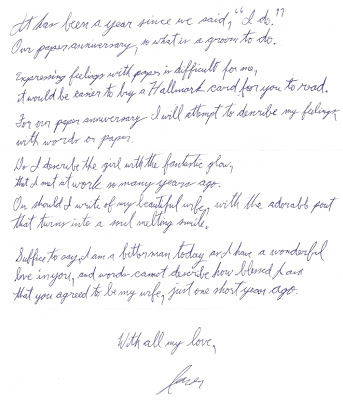 It has been a year since we said, "I do."
Our paper anniversary, so what is a groom to do.
Expressing feelings with paper is difficult for me,
it would be easier to buy a Hallmark card for you to read.
For our paper anniversary I will attempt to describe my feelings,
with words on paper.
Do I describe the girl with the fantastic glow,
that I met at work so many years ago.
Or should I write of my beautiful wife, with the adorable pout
that turns into a soul melting smile.
Suffice to say, I am a better man today and have a wonderful
love in you, and words cannot describe how blessed I am
that you agreed to be my wife, just one short year ago.
With all my love,